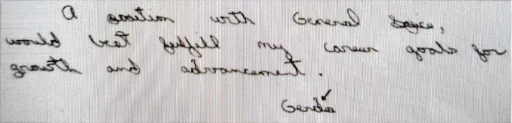 A position with General Sayce,
would best fulfill my career goals for
growth and advancement.